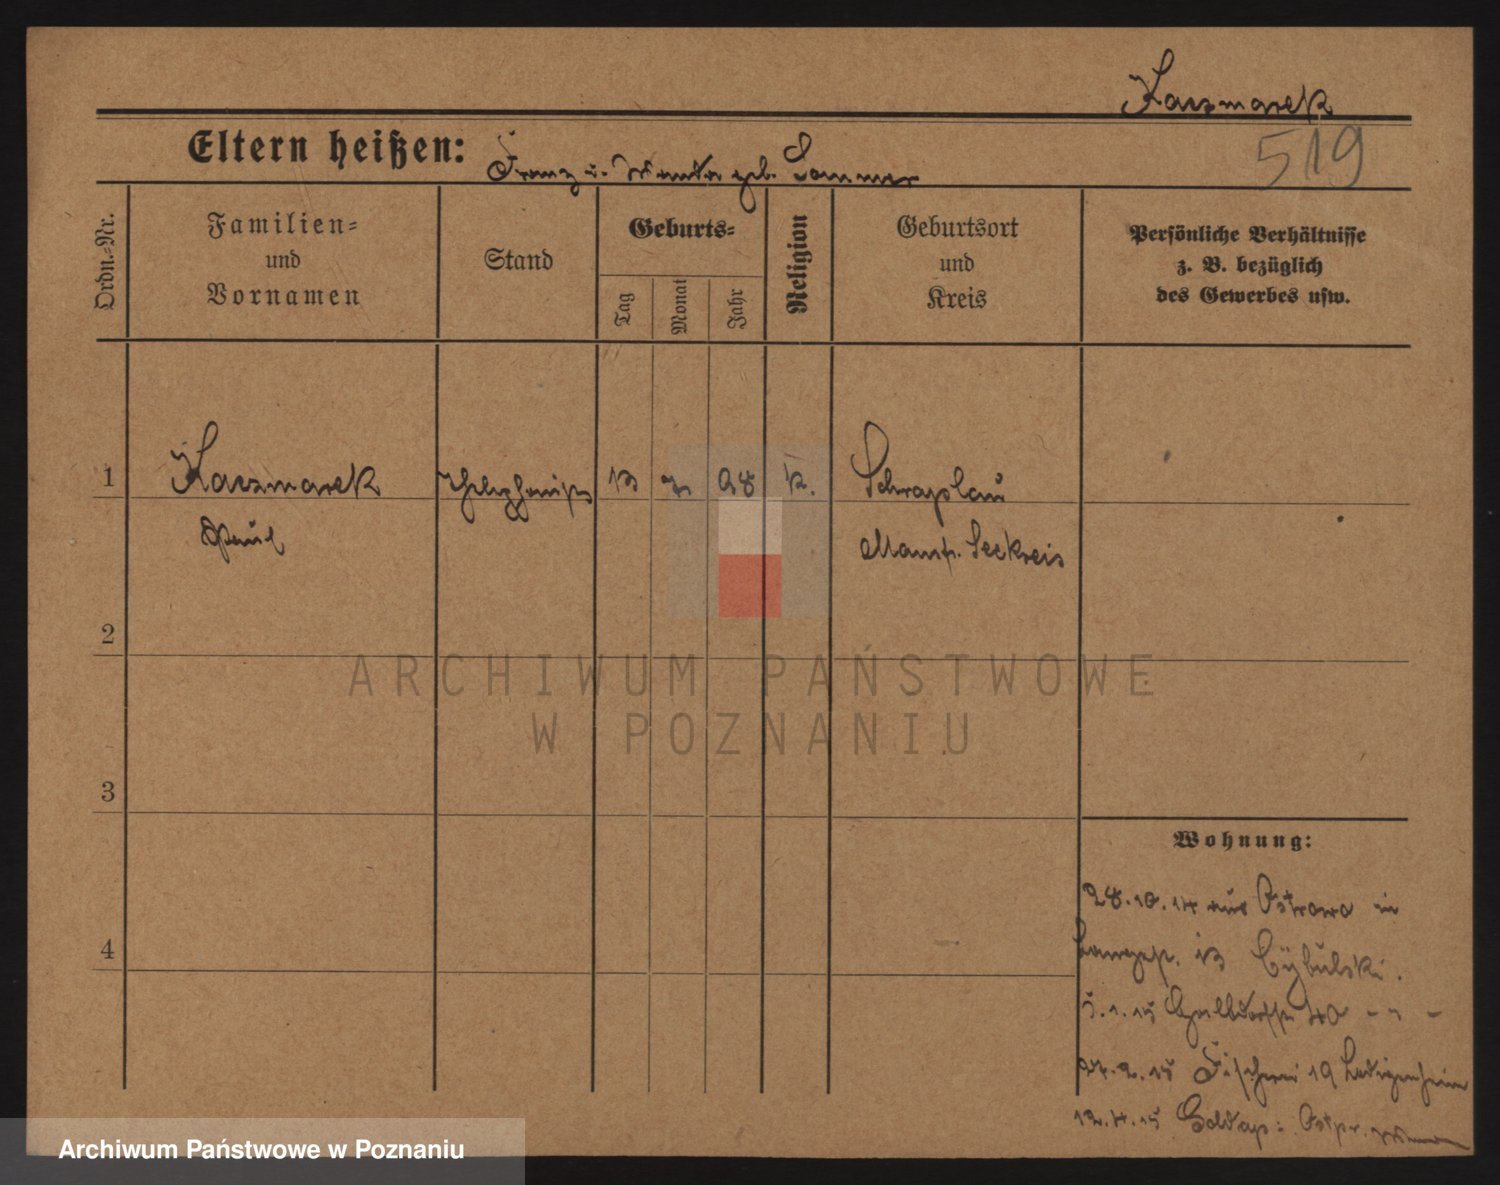 Kaczmarek
519
Eltern heißen: Franz u. Wanda geb. Sommer
Ordn.-Nr.
Familien-
und
Vornamen
Stand
Geburts-
Tag
Monat
Jahr
Religion
Geburtsort
und
Kreis
Persönliche Verhältnisse
z. B. bezüglich
des Gewerbes usw.
1 Kaczmarek 13 98 k. Schraplau
Paul Mansf. Seekreis
2
ARCHIWUM PAŃSTWOWE
W POZNANIU
3
Wohnung:
28.10.14 aus Ostrowo in
Langestr. 13 Cybulski.
5.1.15 40 - " -
24.2.15 Fischerei 19 Ledigenheim
4
12.4.15 Goldap: Ostpr.
Archiwum Państwowe w Poznaniu